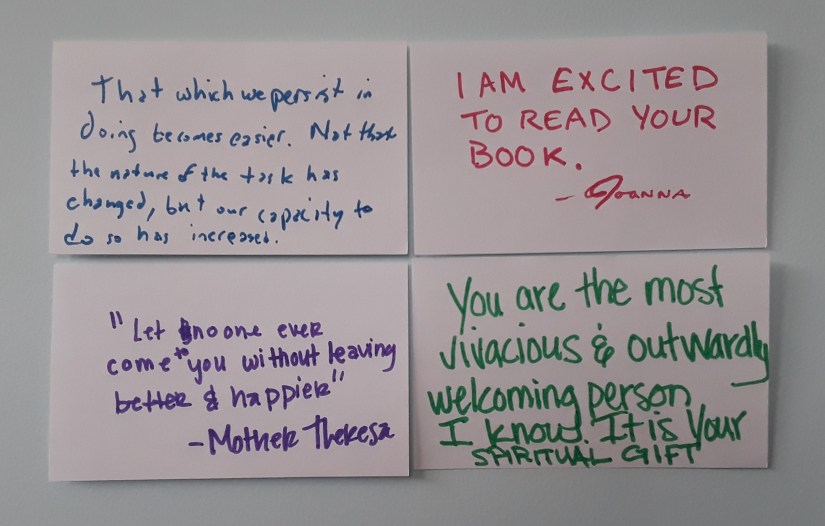 That which we persist in
doing becomes easier. Not that
the nature of the task has
changed, but our capacity to
do so has increased.
I AM EXCITED
TO READ YOUR
BOOK.
- JOANNA
"Let no one ever
come to you without leaving
better & happier"
- Mother Theresa
You are the most
vivacious & outwardly
welcoming person
I know. It is your
SPIRITUAL GIFT